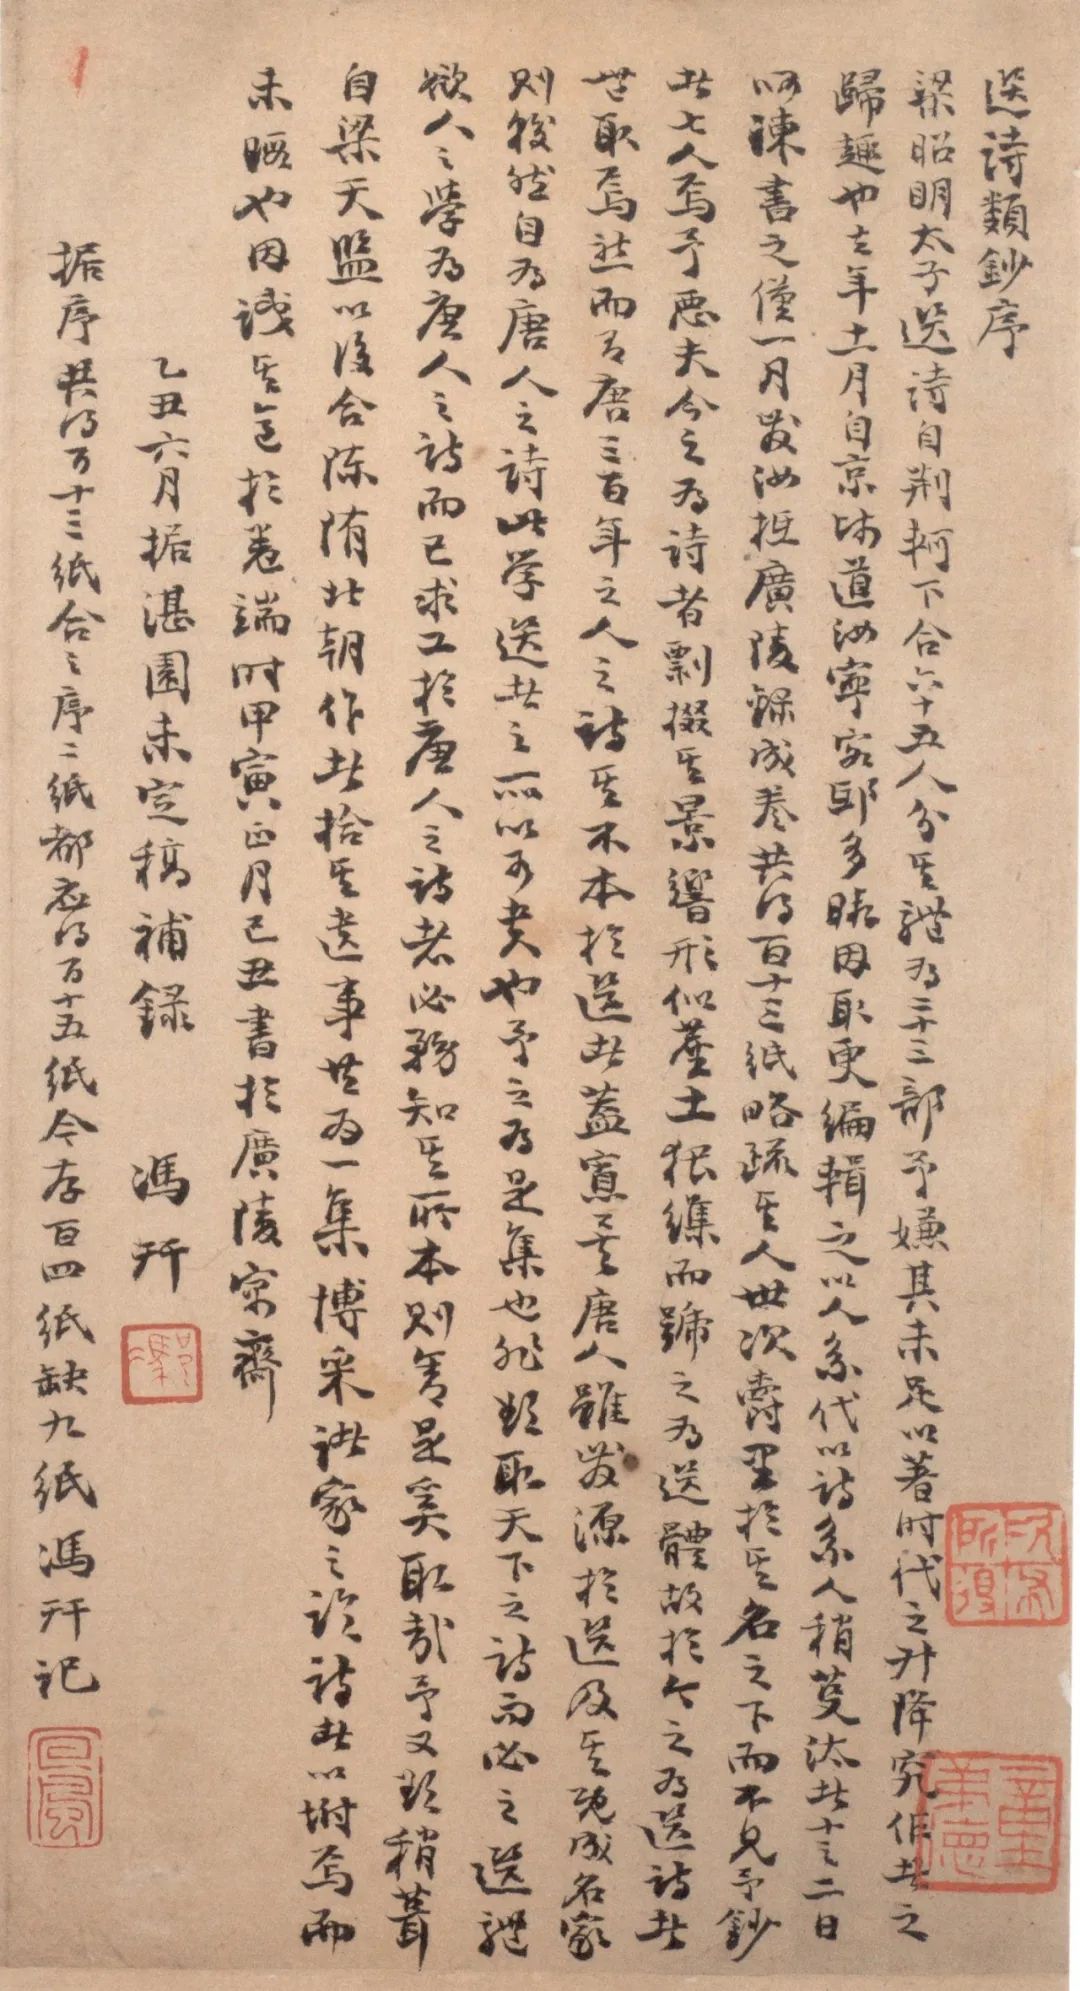 選詩類鈔序
梁昭明太子選詩自荊軻下合六十五人分其體為二十三部予嫌其未足以著時代之升降究作者之
歸趣也去年十一月自京師道汝寧客邸多暇因取更編輯之以人系代以詩系人稍芟汰者十之二日
呵凍書之僅一月發汝抵廣陵錄成卷共得百十三紙略疏其人世次爵里於其名之下而不見予鈔
者七人焉予惡夫今之為詩者剽掇其景響形似塵土猥雜而號之為選體故於今之為選詩者
無取焉然而有唐三百年之人之詩其不本於選者蓋寡矣唐人雖發源於選及其既成名家
則穆然自為唐人之詩此學選者之所以可貴也予之為是集也非欲取天下之詩而必之選體
欲人之學為唐人之詩而已求工於唐人之詩者必務知其所本則舍是奚取哉予又欲稍葺
自梁天監以後合陳隋北朝作者拾其遺事共為一集博采諸家之論詩者以坿焉而
未暇也因識其意於卷端時甲寅正月己丑書於廣陵客齋
乙丑六月据湛園未定稿補錄 馮幵
据序共得百十三紙合之序二紙都應得百十五紙今存百四紙缺九紙馮幵記